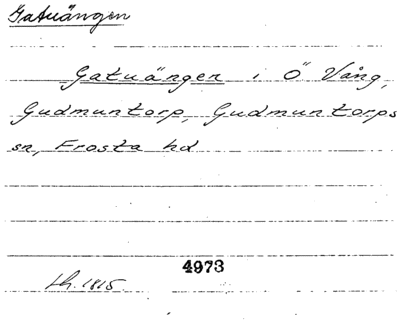 Gatuängen
Gatuängen i Ö Vång,
Gudmuntorp, Gudmuntorps
sn, Frosta hd
4973
Lh. 1815